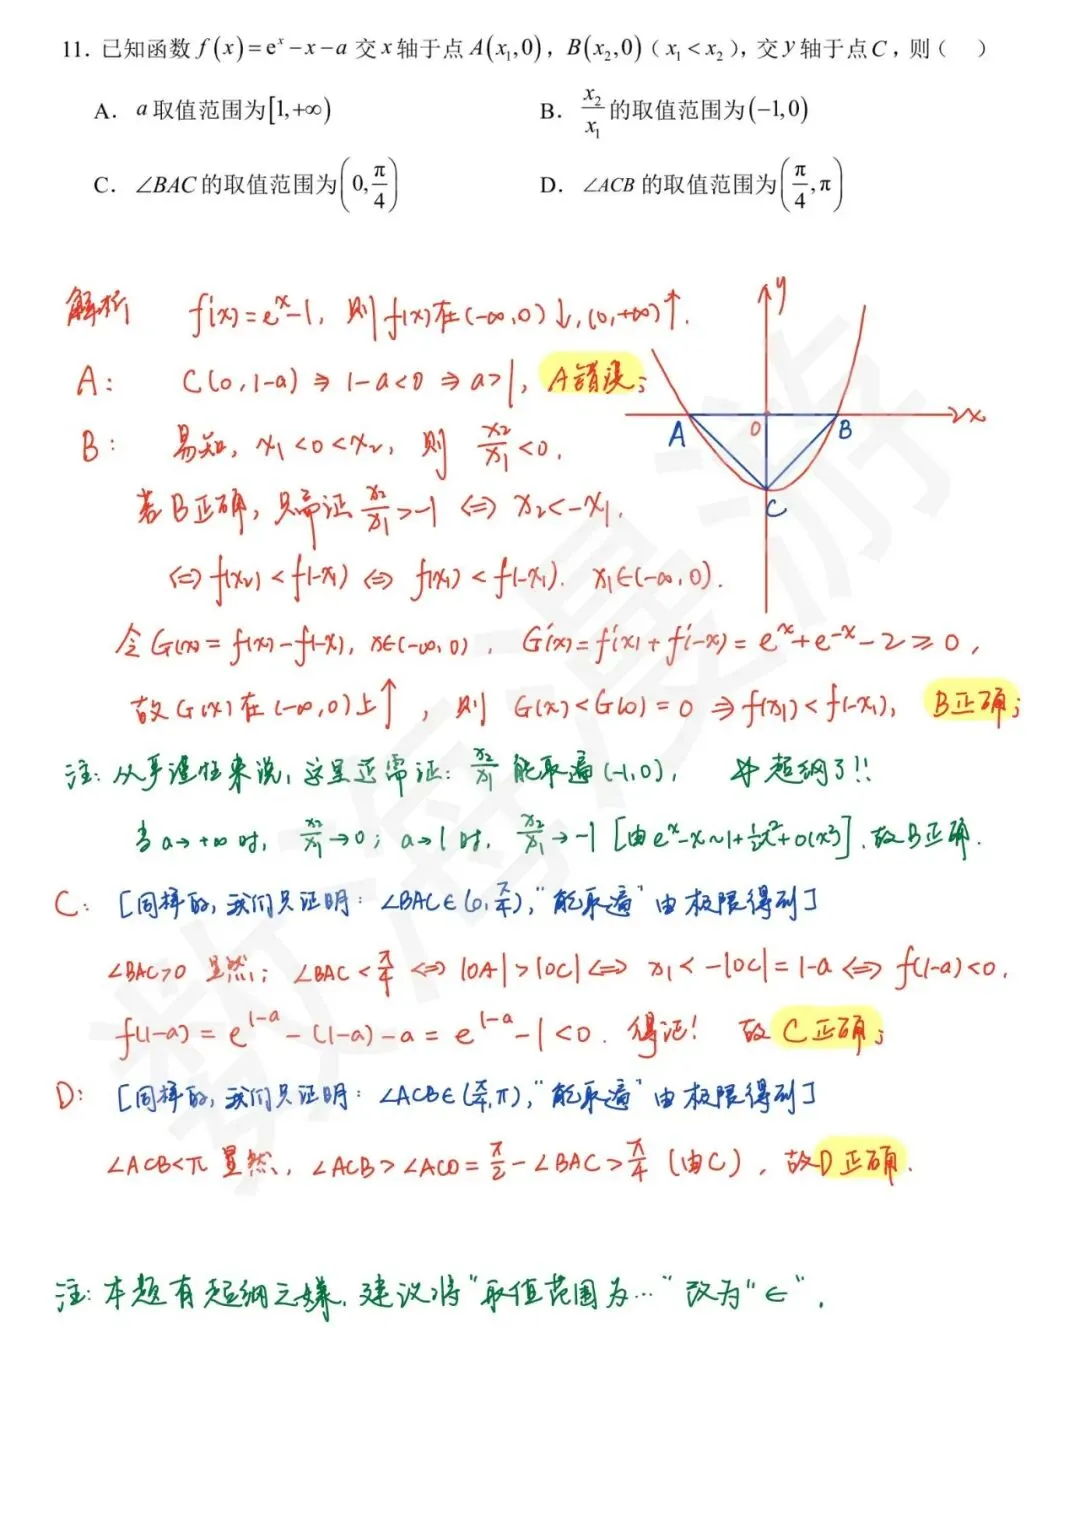 11. 已知函数 f(x)=eˣ-x-a 交 x 轴于点 A(x₁,0), B(x₂,0) (x₁<x₂), 交 y 轴于点 C, 则( )
A. a 取值范围为[1,+∞) B. x₂/x₁ 的取值范围为(-1,0)
C. ∠BAC 的取值范围为(0,π/4) D. ∠ACB 的取值范围为(π/4,π)
解析 f'(x)=eˣ-1, 则f(x)在(-∞,0)↓,(0,+∞)↑.
A: C(0,1-a)⇒1-a<0⇒a>1, A错误;
B: 易知, x₁<0<x₂, 则 x₂/x₁<0.
若B正确, 只需证 x₂/x₁>-1 ⇔ x₂<-x₁.
⇔f(x₂)<f(-x₁)⇔ f(x₁)<f(-x₁). x₁∈(-∞,0).
令G(x)=f(x)-f(-x), x∈(-∞,0), G'(x)=f'(x)+f'(-x)=eˣ+e⁻ˣ-2≥0,
故G(x)在(-∞,0)上↑, 则 G(x)<G(0)=0⇒f(x₁)<f(-x₁), B正确;
注: 从严谨性来说, 这里还需证: x₂/x₁ 能取遍(-1,0), 超纲了!!
当a→+∞时, x₂/x₁→0; a→1时, x₂/x₁→-1 [由eˣ-x~1+½x²+o(x³)], 故B正确.
C: [同样的, 我们只证明: ∠BAC∈(0,π/4), "能取遍"由极限得到]
∠BAC>0 显然; ∠BAC<π/4⇔|OA|>|OC|⇔ x₁<-|OC|=1-a⇔f(1-a)<0.
f(1-a)=e¹⁻ᵃ-(1-a)-a=e¹⁻ᵃ-1<0. 得证! 故C正确;
D: [同样的, 我们只证明: ∠ACB∈(π/4,π), "能取遍"由极限得到]
∠ACB<π 显然, ∠ACB>∠ACO=π/2-∠BAC>π/4 (由C), 故D正确.
注: 本题有超纲之嫌, 建议将"取值范围为…"改为"∈".
y
x
A
O
B
C
数海漫游